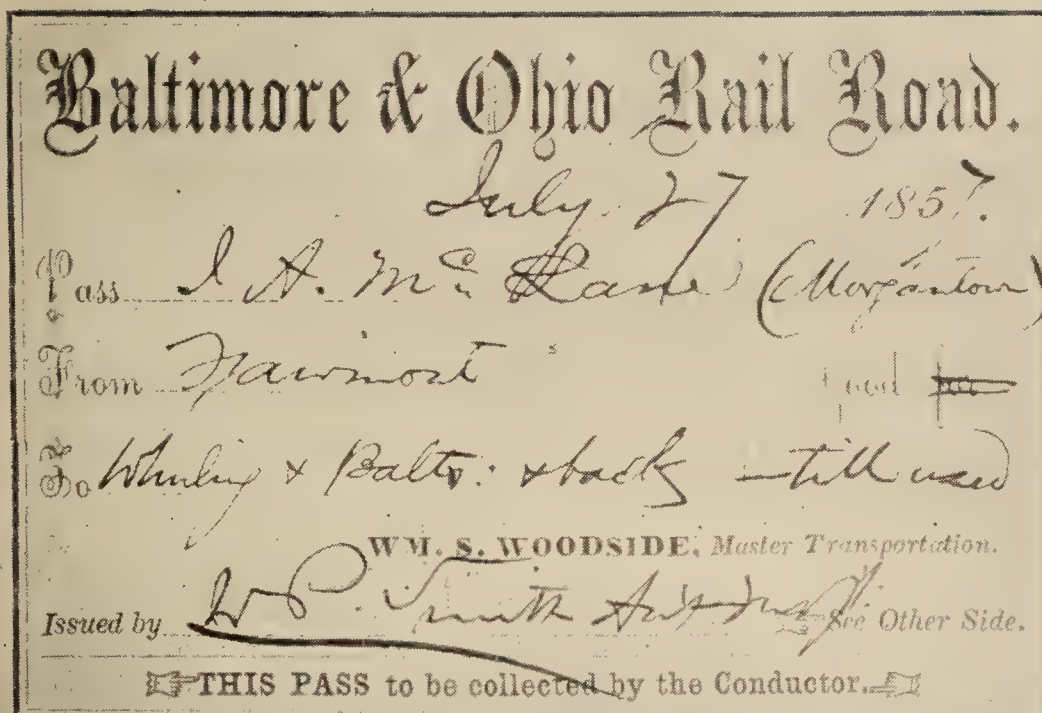 Baltimore & Ohio Rail Road.
July 27 1857.
Pass I A. Mc Lane (Morgantown)
From Fairmont Good for
To Wheeling & Balto: & back – till used
WM. S. WOODSIDE, Master Transportation.
Issued by W P. Smith See Other Side.
THIS PASS to be collected by the Conductor.